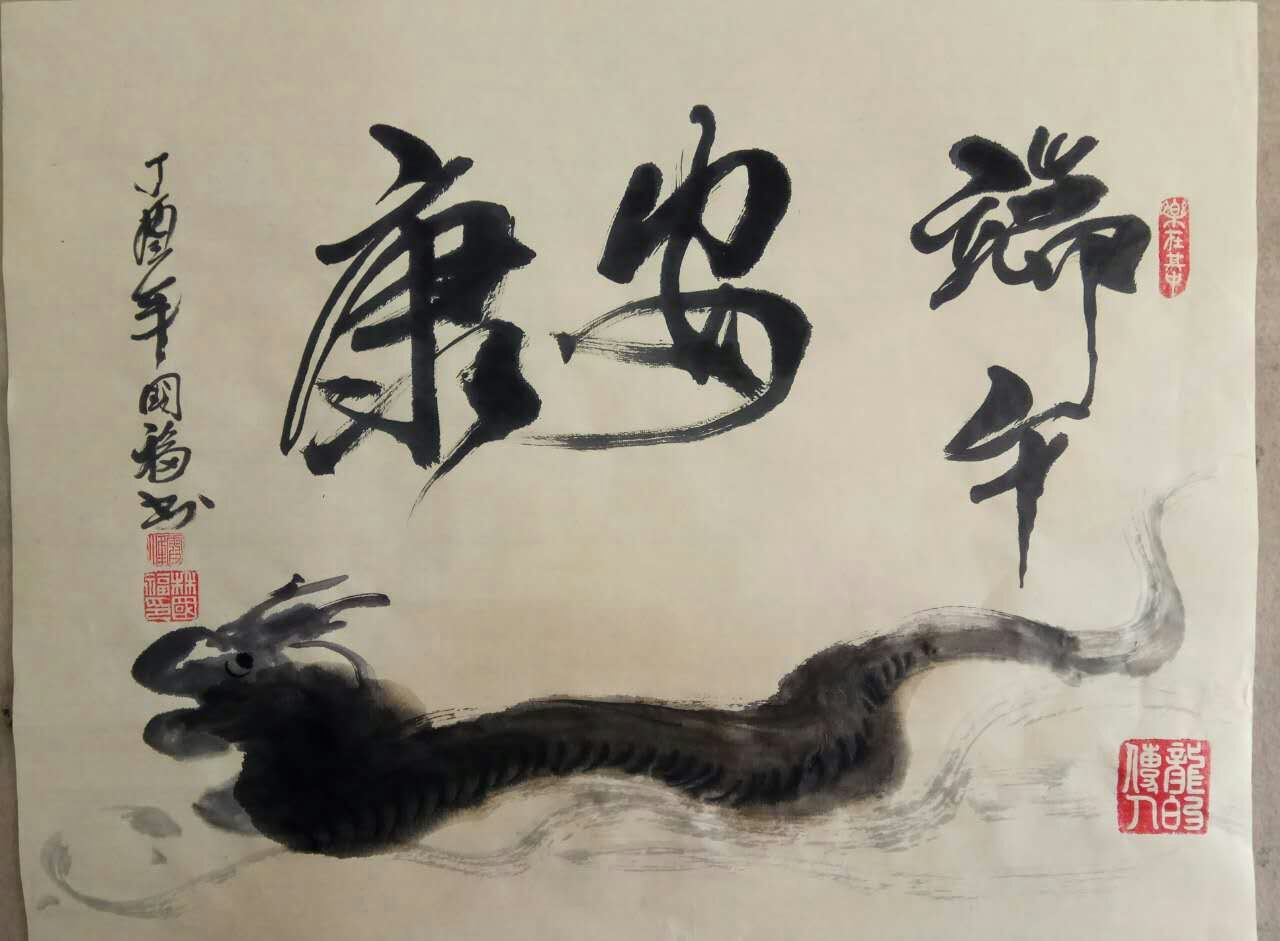 端午
安康
丁酉年国福书
樂在其中
林國福印
龍的傳人